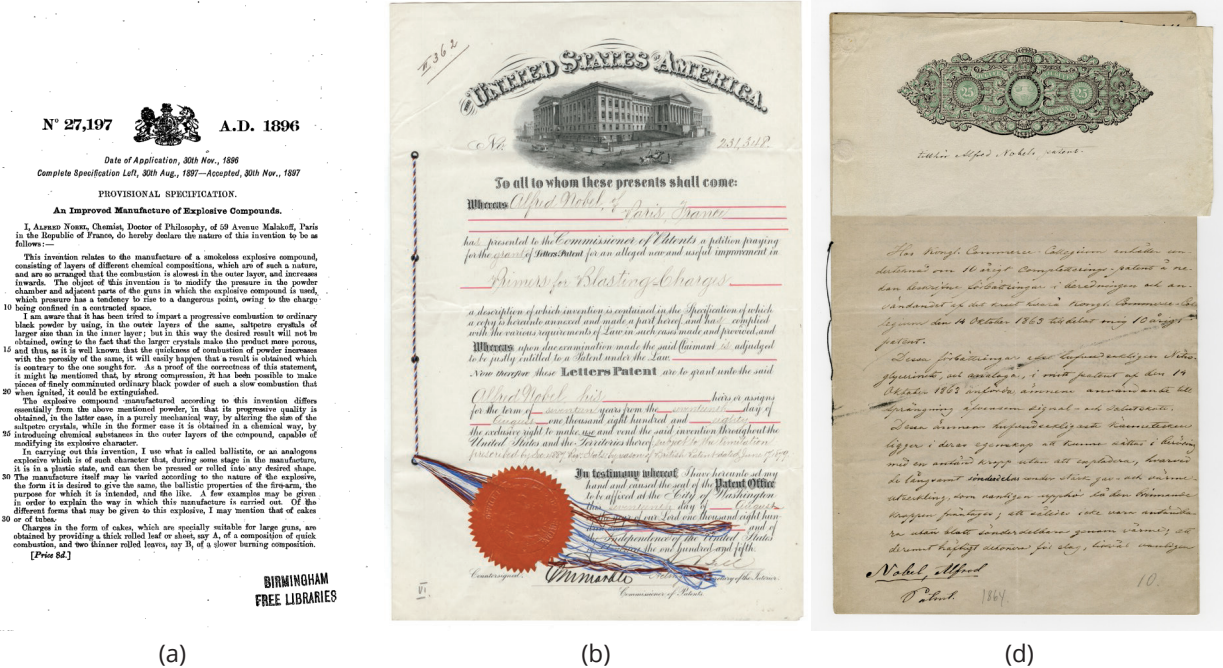 Nº 27,197 A.D. 1896
Date of Application, 30th Nov., 1896
Complete Specification Left, 30th Aug., 1897—Accepted, 30th Nov., 1897
PROVISIONAL SPECIFICATION.
An Improved Manufacture of Explosive Compounds.
I, ALFRED NOBEL, Chemist, Doctor of Philosophy, of 59 Avenue Malakoff, Paris
in the Republic of France, do hereby declare the nature of this invention to be as
follows:—
This invention relates to the manufacture of a smokeless explosive compound,
consisting of layers of different chemical compositions, which are of such a nature,
and are so arranged that the combustion is slowest in the outer layer, and increases
inwards. The object of this invention is to modify the pressure in the powder
chamber and adjacent parts of the guns in which the explosive compound is used,
which pressure has a tendency to rise to a dangerous point, owing to the charge
10 being confined in a contracted space.
I am aware that it has been tried to impart a progressive combustion to ordinary
black powder by using, in the outer layers of the same, saltpetre crystals of
larger size than in the inner layer; but in this way the desired result will not be
obtained, owing to the fact that the larger crystals make the product more porous,
15 and thus, as it is well known that the quickness of combustion of powder increases
with the porosity of the same, it will easily happen that a result is obtained which
is contrary to the one sought for. As a proof of the correctness of this statement,
it might be mentioned that, by strong compression, it has been possible to make
pieces of finely comminuted ordinary black powder of such a slow combustion that
20 when ignited, it could be extinguished.
The explosive compound manufactured according to this invention differs
essentially from the above mentioned powder, in that its progressive quality is
obtained, in the latter case, in a purely mechanical way, by altering the size of the
saltpetre crystals, while in the former case it is obtained in a chemical way, by
25 introducing chemical substances in the outer layers of the compound, capable of
modifying its explosive character.
In carrying out this invention, I use what is called ballistite, or an analogous
explosive which is of such character that, during some stage in the manufacture,
it is in a plastic state, and can then be pressed or rolled into any desired shape.
30 The manufacture itself may be varied according to the nature of the explosive,
the form it is desired to give the same, the ballistic properties of the fire-arm, the
purpose for which it is intended, and the like. A few examples may be given
in order to explain the way in which this manufacture is carried out. Of the
different forms that may be given to this explosive, I may mention that of cakes
30 or of tubes.
Charges in the form of cakes, which are specially suitable for large guns, are
obtained by providing a thick rolled leaf or sheet, say A, of a composition of quick
combustion, and two thinner rolled leaves, say B, of a slower burning composition.
[Price 8d.]
BIRMINGHAM
FREE LIBRARIES
(a)
II 362
THE UNITED STATES OF AMERICA.
No. 231,348.
To all to whom these presents shall come:
Whereas Alfred Nobel, of
Paris, France
has presented to the Commissioner of Patents a petition praying
for the grant of Letters Patent for an alleged new and useful improvement in
Primers for Blasting Charges
a description of which invention is contained in the Specification of which
a copy is hereunto annexed and made a part hereof, and has complied
with the various requirements of Law in such cases made and provided, and
Whereas upon due examination made the said Claimant is adjudged
to be justly entitled to a Patent under the Law.
Now therefore these Letters Patent are to grant unto the said
Alfred Nobel his heirs or assigns
for the term of seventeen years from the seventeenth day of
August one thousand eight hundred and eighty
the exclusive right to make, use and vend the said invention throughout the
United States and the Territories thereof subject to the limitation
In testimony whereof I have hereunto set my
hand and caused the seal of the Patent Office
to be affixed at the City of Washington
this seventeenth day of August
of our Lord one thousand eight hun-
and of
the Independence of the United States
of America the one hundred and fifth.
Countersigned
Secretary of the Interior.
Commissioner of Patents.
VI.
(b)
25 25
Alfred Nobels patent.
Hos Kongl. Commerce Collegium
om 10 årigt patent å
Kongl. Commerce
den 14 Oktober 1863 mig 10 årigt
patent.
Dessa förbättringar
patent af den 14
Oktober 1863
Nobel, Alfred
Patent. 1864.
10.
(d)